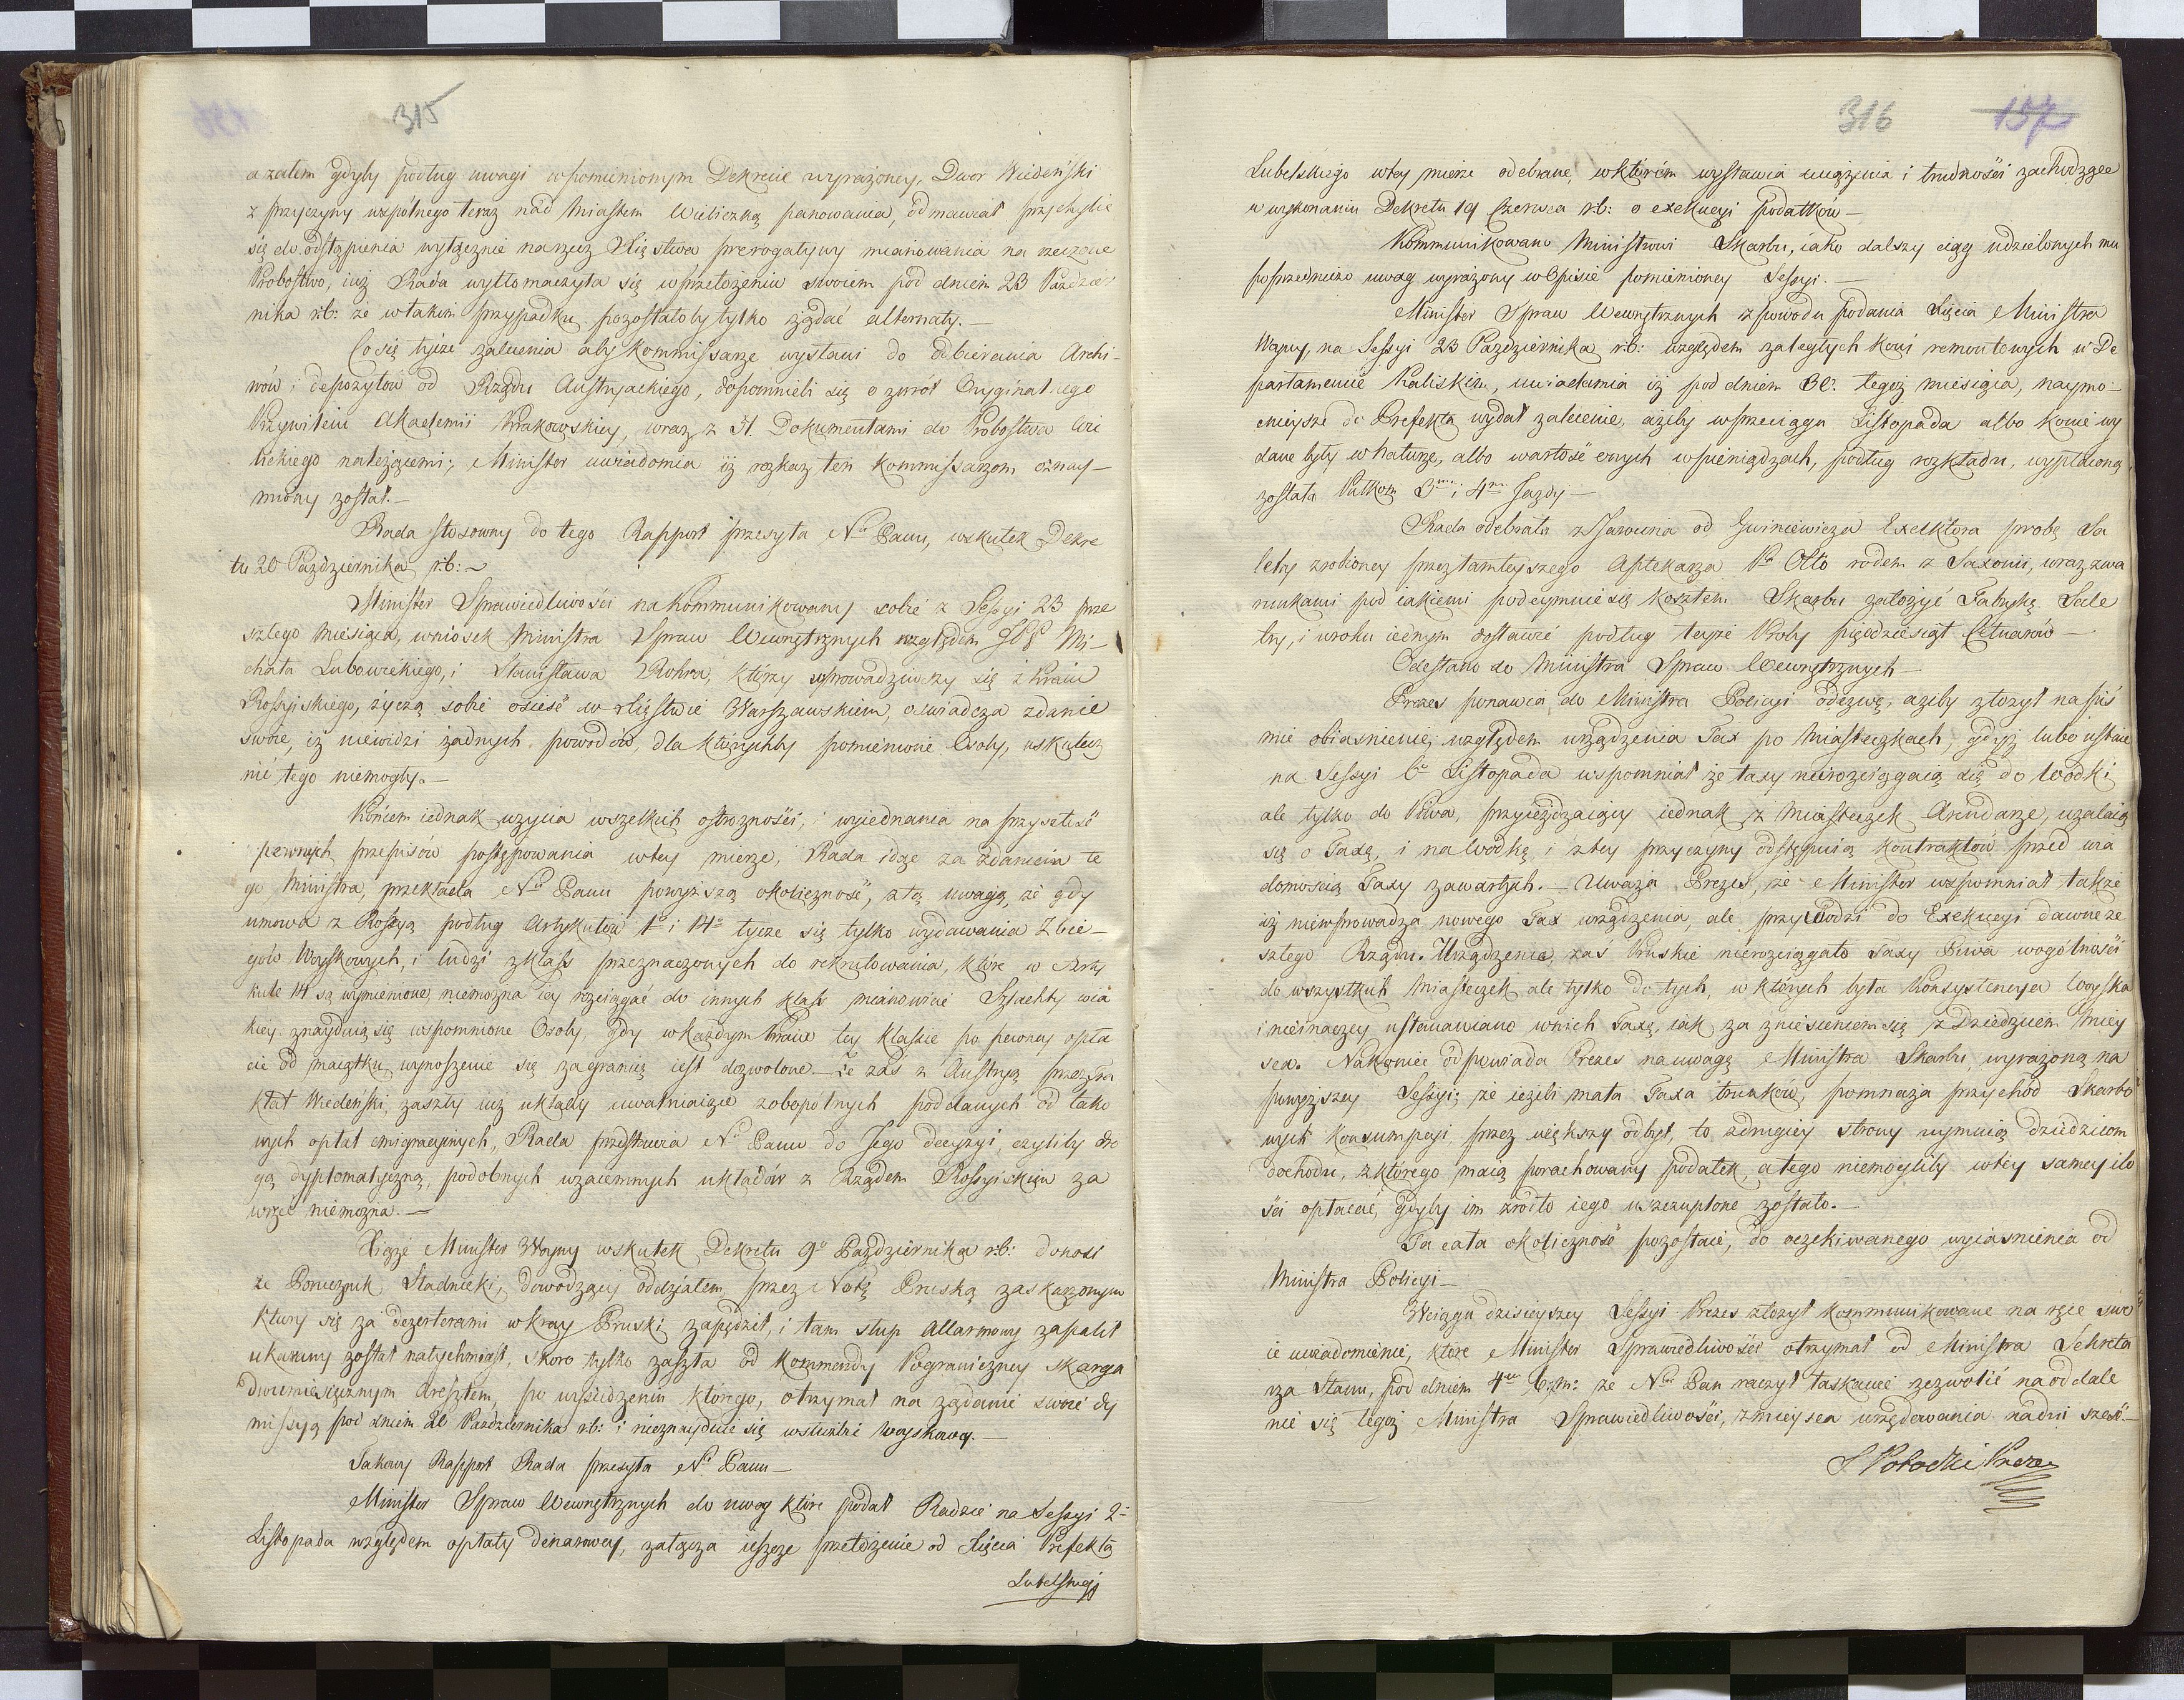 315
a zatem gdyby podług uwagi wpomienionym Dekrecie wyrażoney, Dwor Wiedeński
z przyczyny wspólnego teraz nad Miastem Wieliczką panowania, odmawiał przychylić
się do odstąpienia wyłącznie na rzecz Xięstwa prerogatywy mianowania na rzeczone
Probostwo, iuż Rada wytłomaczyła się w przełożeniu swoiem pod dniem 23 Paździer
nika r.b: że w takim przypadku pozostałoby tylko żądać alternaty.—
Co się tycze zalecenia aby Kommissarze wysłani do odbierania Archi-
wów i depozytów od Rządu Austryackiego, dopomnieli się o zwrót Oryginalnego
Przywileiu Akademii Krakowskiey, wraz z 31. Dokumentami do Probostwa Wie
lickiego należącemi; Minister uwiadomia iż rozkaz ten Kommissarzom oznay-
miony został.—
Rada stosowny do tego Rapport przesyła N° Panu, wskutek Dekre
tu 20 Października r.b:—
Minister Sprawiedliwości na kommunikowany sobie z Sessyi 23 prze
szłego Miesiąca, wniosek Ministra Spraw Wewnętrznych względem JPP Mi-
chała Lubowieckiego, i Stanisława Rohra, którzy wprowadziwszy się z Kraiu
Rossyiskiego, życzą sobie osieść w Xięstwie Warszawskiem, oświadcza zdanie
swoie, iż niewidzi żadnych powodów, dla którychby pomienione Osoby, uskutecz
nić tego niemogły.—
Końcem iednak użycia wszelkich ostrożności, i wyiednania na przyszłość
pewnych przepisów postępowania wtey mierze, Rada idąc za zdaniem te
go Ministra, przekłada N° Panu powyższą okoliczność, z tą uwagą, że gdy
umowa z Rossyą podług Artykułów 1° i 14° tycze się tylko wydawania Zbie-
gów Woyskowych, i ludzi z klass przeznaczonych do rekrutowania, które w Arty
kule 14 są wymienione, niemożna iey rozciągać do innych klass mianowicie Szlachty wia
kiey znayduią się wspomnione Osoby, gdy w każdym kraiu tey klassie po pewney opła
cie od maiątku wynoszenie się zagranicę iest dozwolone.— Że zaś z Austryą przez Tra
ktat Wiedeński, zaszły iuż układy uwalniaiące zobopólnych poddanych od tako
wych opłat emigracyinych, Rada przedstawia N° Panu do Jego decyzyi, czyliby dro
gą dyplomatyczną, podobnych wzaiemnych układów z Rządem Rossyiskim za
wrzeć niemożna.—
Xiążę Minister Woyny wskutek Dekretu 9° Października r.b: donosi
że Porucznik Stadnicki, dowodzący oddziałem przez Notę Pruską zaskarżonym
który się za dezerterami w kray Pruski zapędził, i tam słup Allarmowy zapalił
ukarany został natychmiast, skoro tylko zaszła od Kommendy Pograniczney skarga
dwumiesięcznym Aresztem, po wysiedzeniu którego, otrzymał na żądanie swoie dy
missyą pod dniem 20 Października r.b: i nieznayduie się w służbie woyskowey.—
Takowy Rapport Rada przesyła N° Panu—
Minister Spraw Wewnętrznych do uwag które podał Radzie na Sessyi 2°
Listopada względem opłaty denarowey, załącza ieszcze przełożenie od Xięcia Prefekta
Lubelskiego
316 157
Lubelskiego wtey mierze odebrane, w którém wystawia uciążenia i trudności zachodzące
w wykonaniu Dekretu 19 Czerwca r.b: o exekucyi podatków—
Kommunikowano Ministrowi Skarbu, iako dalszy ciąg udzielonych mu
poprzedniczo uwag wyrażony w Opisie pomienioney Sessyi.—
Minister Spraw Wewnętrznych z powodu podania Xięcia Ministra
Woyny, na Sessyi 23 Października r.b: względem zaległych koni remontowych w De
partamencie Kaliskim, uwiadamia iż pod dniem 30. tegoż miesiąca, naymo-
cnieysze do Prefekta wydał zalecenie, ażeby w przeciągu Listopada albo konie wy
dane były w naturze, albo wartość onych w pieniądzach, podług rozkładu, wypłaconą
została Pułkom 3mu i 4mu Jazdy—
Rada odebrała od Exekktora probę Sa
letry zrobioney przez tamteyszego Aptekarza Pa Otto rodem z Saxonii, wraz z wa
runkami pod iakiemi podeymuie się kosztem Skarbu założyć Fabrykę Sale
try, i w roku iednym dostawić podług teyże Proby pięćdziesiąt Cetnarów—
Odesłano do Ministra Spraw Wewnętrznych—
Prezes ponawia do Ministra Policyi odezwę, ażeby złożył na piś
mie obiaśnienie, względem urządzenia Tax po Miasteczkach, gdyż lubo ustnie
na Sessyi 6° Listopada wspomniał że taxy nierozciągaią się do Wodki
ale tylko do Piwa, przyieżdżaiący iednak z Miasteczek Arendarze, użalaią
się o Taxę, i na Wodkę, i z tey przyczyny odstępuią kontraktów przed wia
domością Taxy zawartych.— Uważa Prezes, że Minister wspomniał także
iż niewprowadza nowego Tax urządzenia, ale przywodzi do Exekucyi dawne ze
szłego Rządu. Urządzenie zaś Pruskie nierozciągało Taxy Piwa wogólności
do wszystkich Miasteczek ale tylko do tych, w których była Konsystencya Woyska
i nieinaczey ustanawiano w nich Taxę, iak za zniesieniem się z Dziedzicem Miey
sca. Nakoniec odpowiada Prezes na uwagę Ministra Skarbu wyrażoną na
powyższey Sessyi; że ieżeli mała Taxa trunków, pomnaża przychód Skarbo
wych konsumpcyi przez większy odbyt, to z drugiey strony uymuią dziedzicom
dochodu, z którego maią porachowany podatek, a tego niemogliby wtey samey ilo
ści opłacać, gdyby im źródło iego uszczuplone zostało.—
Ta cała okoliczność pozostaie, do oczekiwanego wyiaśnienia od
Ministra Policyi—
Wciągu dzisieyszey Sessyi Prezes złożył kommunikowane na ręce swo
ie uwiadomienie, które Minister Sprawiedliwości otrzymał od Ministra Sekreta
rza Stanu, pod dniem 4° b.m: że N° Pan raczył łaskawie zezwolić na oddale
nie się tegoż Ministra Sprawiedliwości, z mieysca urzędowania na dni sześć—
S Potocki Prezes